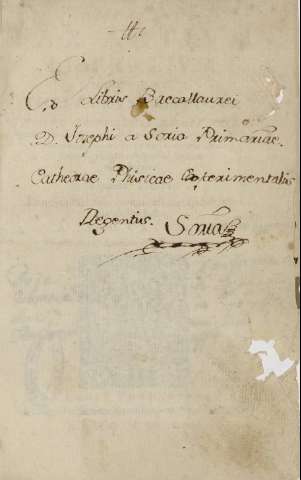 Ex Libris Baccallaurei
D. Josephi a Soria Primariae
Cathedrae Phisicae Experimentalis
Regentis.
Soria